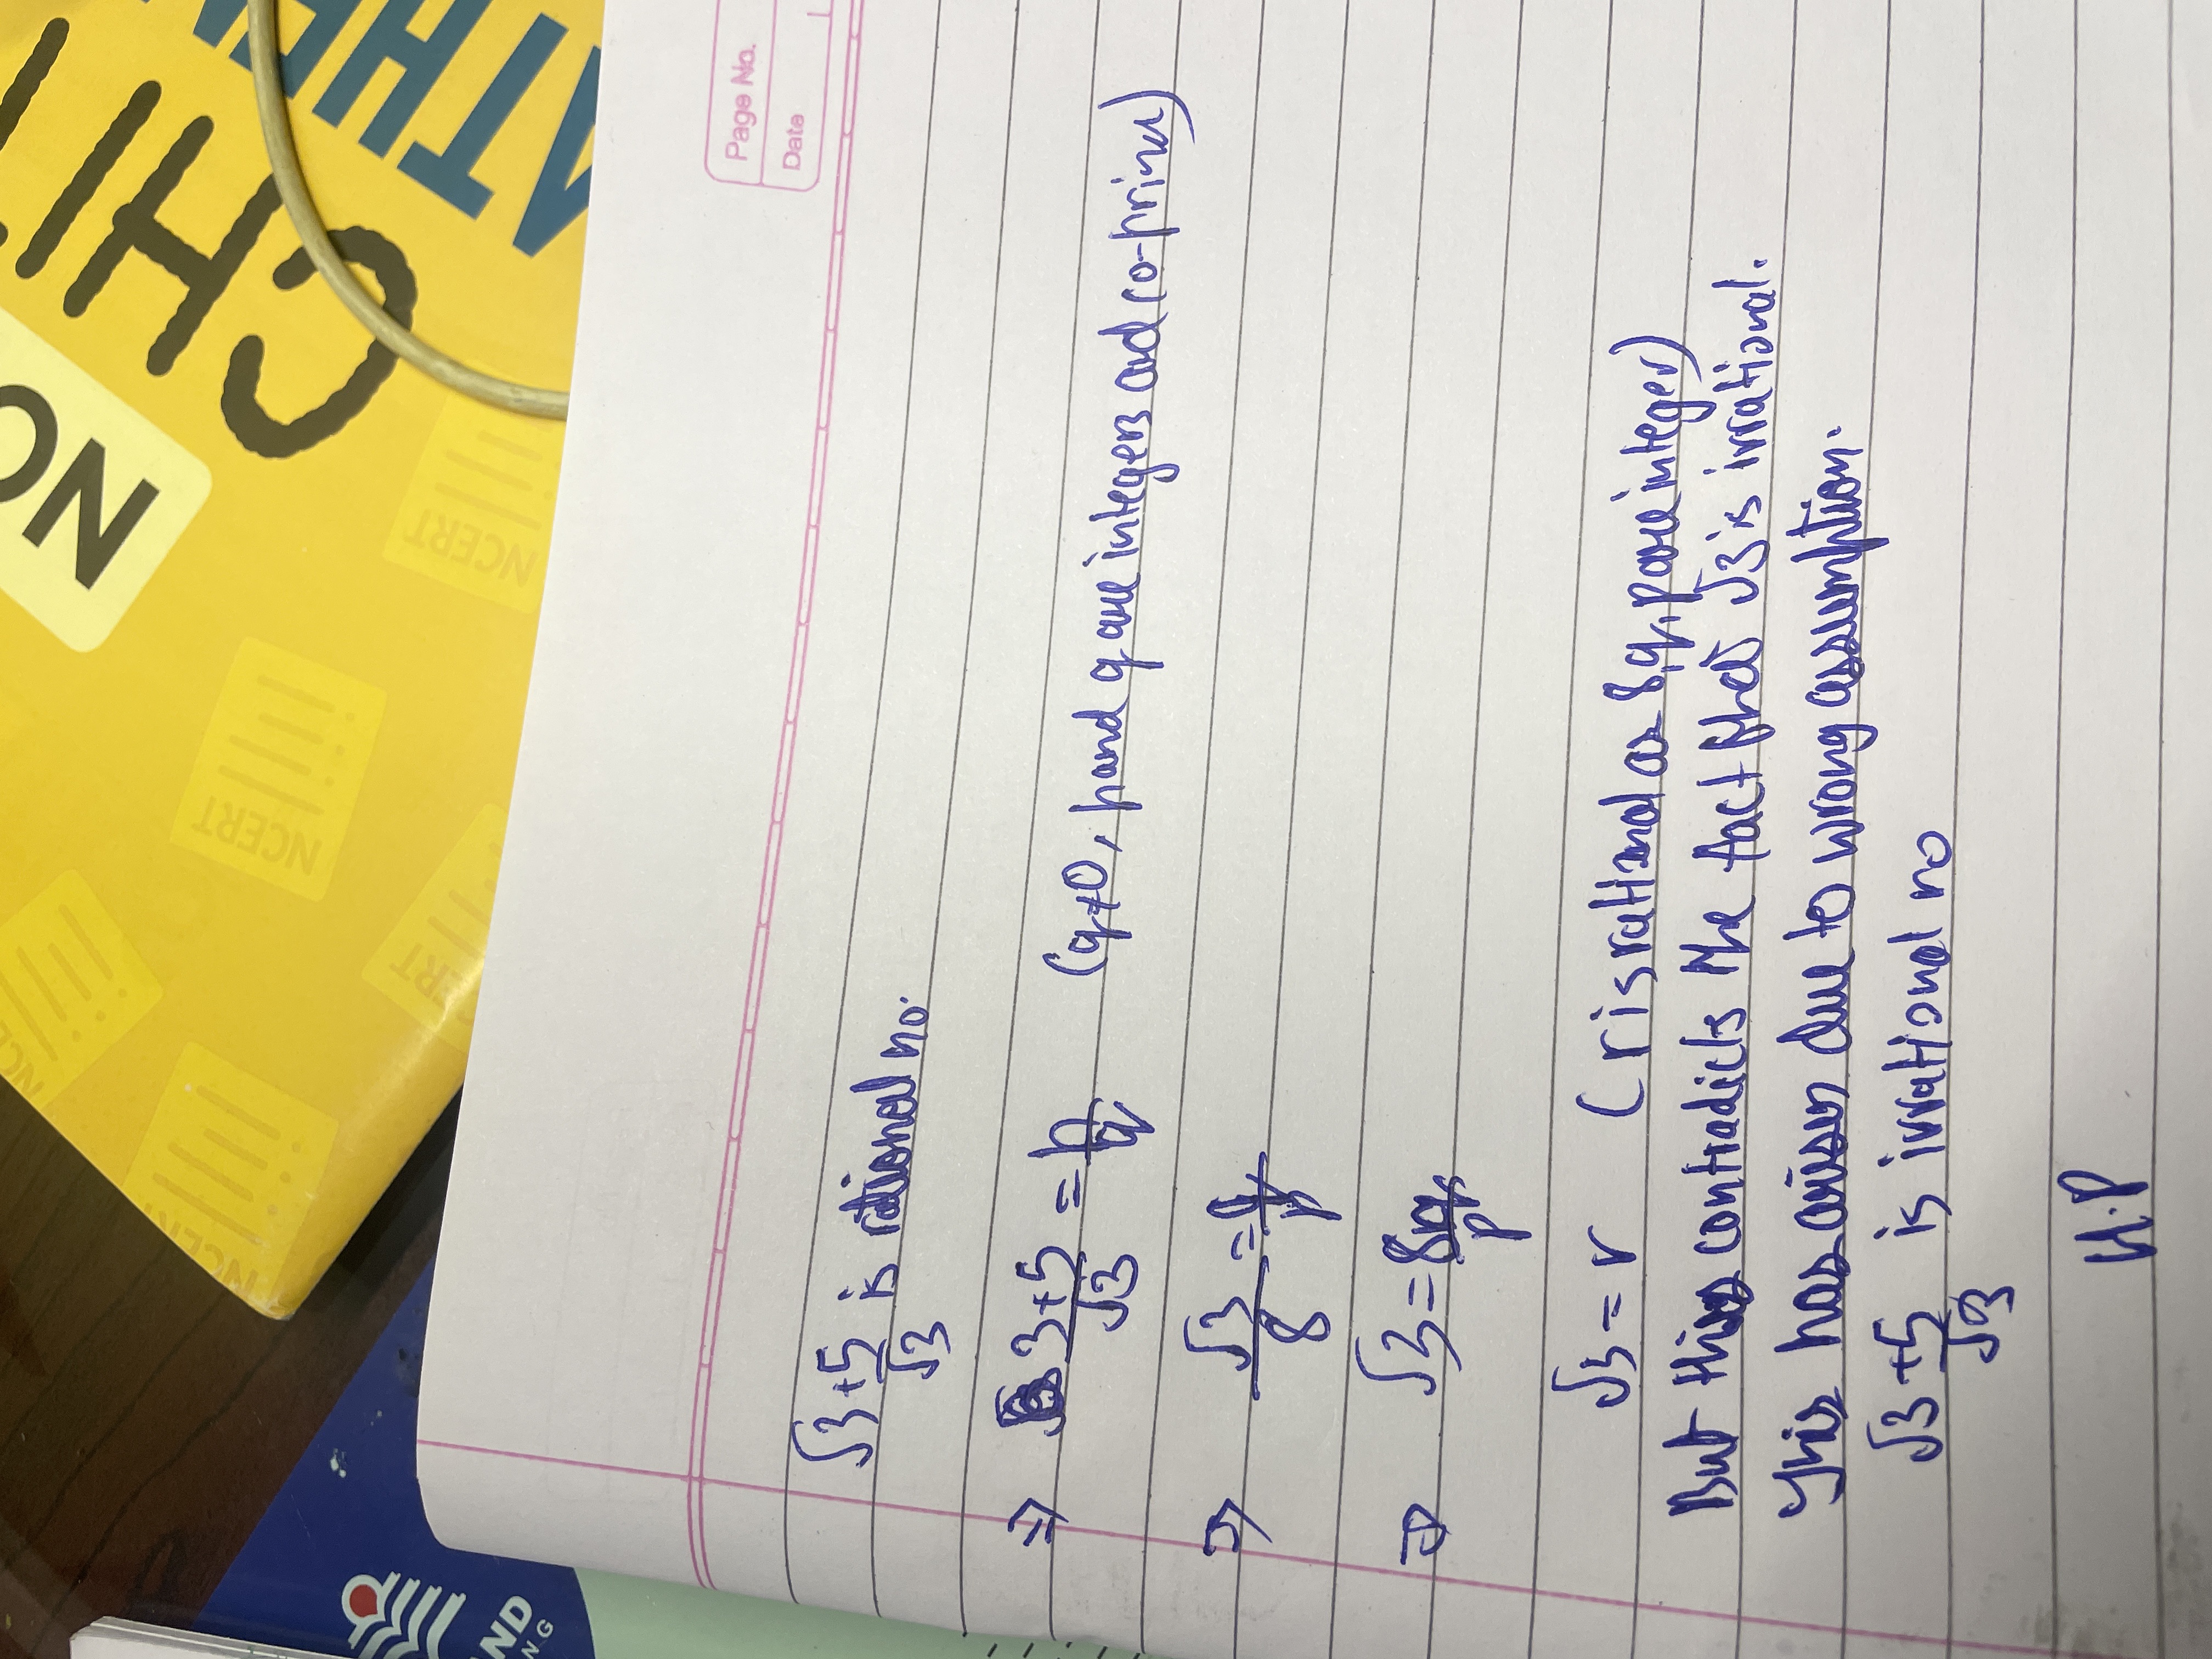 Page No.
Date
√3 + 5/√3 is rational no.
⇒ 3+5/√3 = p/q (q≠0, p and q are integers and co-prime)
⇒ √3/8 = q/p
⇒ √3 = 8q/p
√3 = r (r is rational as 8, q, p are integer)
But this contradicts the fact that √3 is irrational.
This has arisen due to wrong assumption.
√3 + 5/√3 is irrational no
H.P
NCERT
NCERT
NCERT